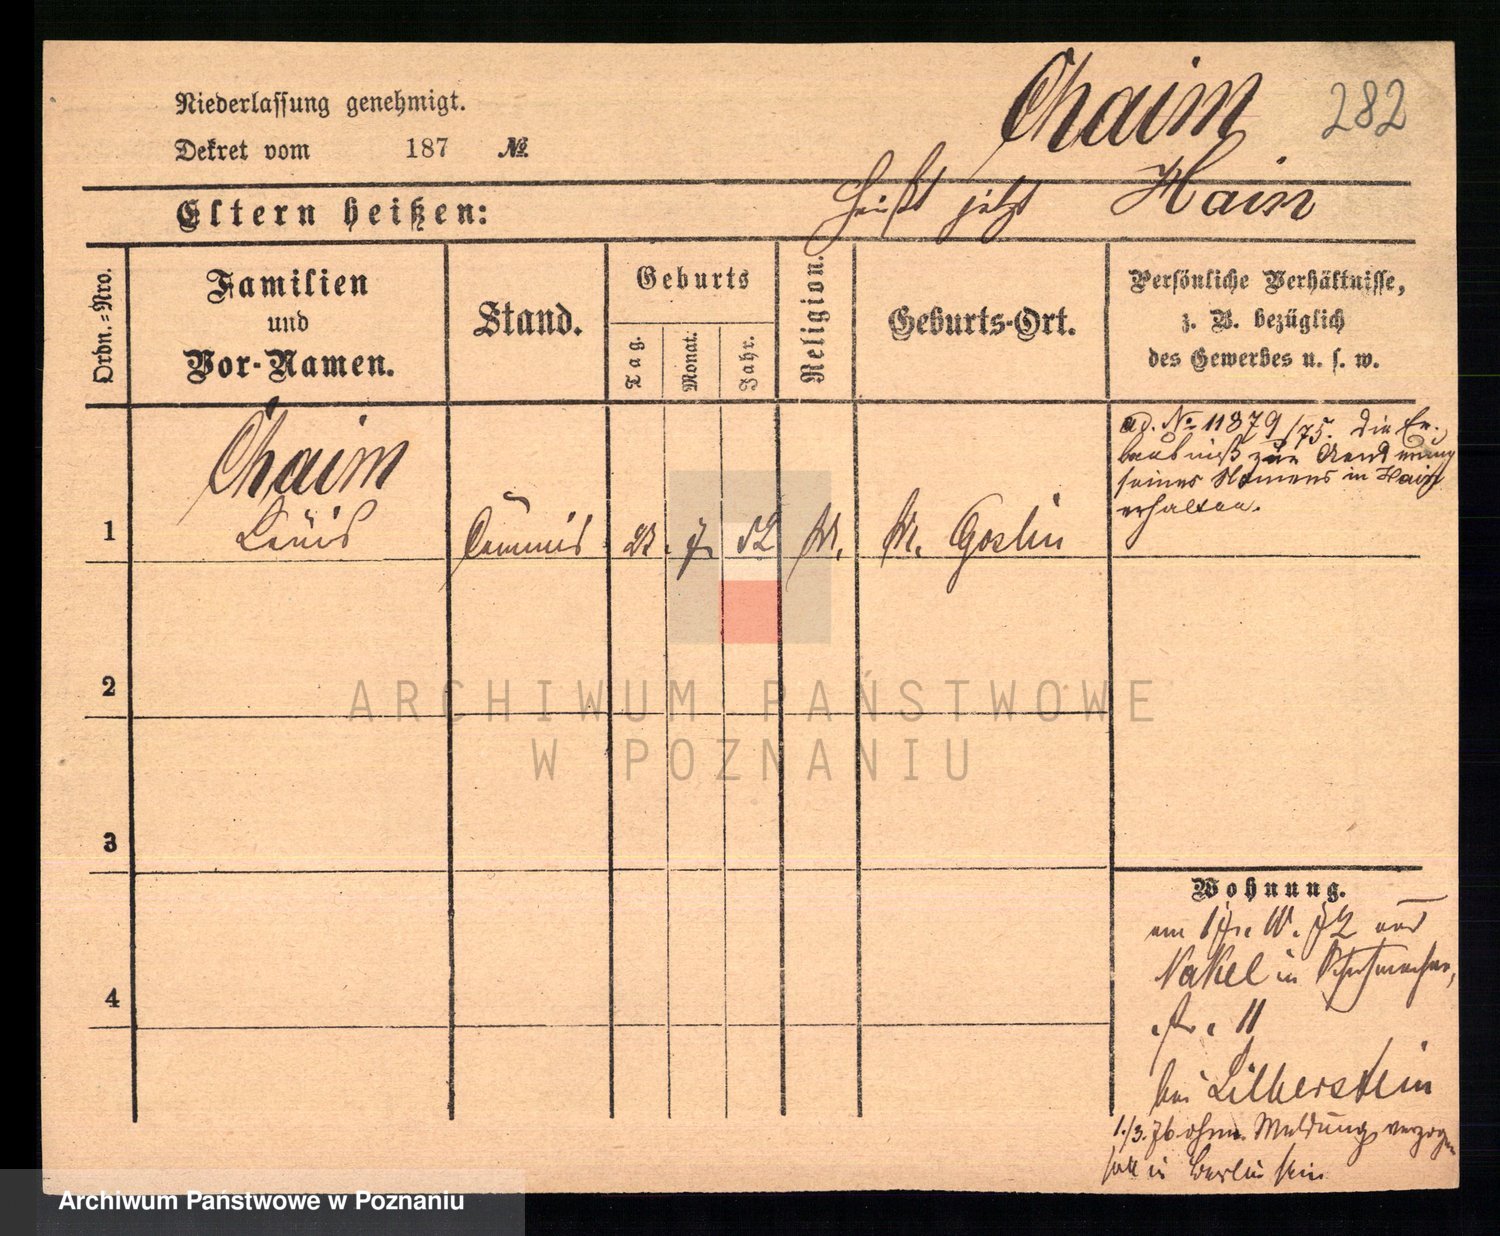 Niederlassung genehmigt.
Dekret vom 187 №
Chaim 282
Eltern heißen:
heißt jetzt Hain
Ordn.-Nro.
Familien
und
Vor-Namen.
Stand.
Geburts
Tag.
Monat.
Jahr.
Religion.
Geburts-Ort.
Persönliche Verhältnisse,
z. B. bezüglich
des Gewerbes u. s. w.
Chaim
1 Louis Commis 7. 52 M. Goslin
ad. № 11879/75. Die Er-
laubniß zur Aenderung
seines Namens in Hain
erhalten.
2
3
4
ARCHIWUM PAŃSTWOWE
W POZNANIU
Wohnung.
am 72 aus
Nakel in Schuhmacher
str. 11
bei Silberstein
1./3. 76 ohne Meldung verzogen
soll in Berlin sein
Archiwum Państwowe w Poznaniu